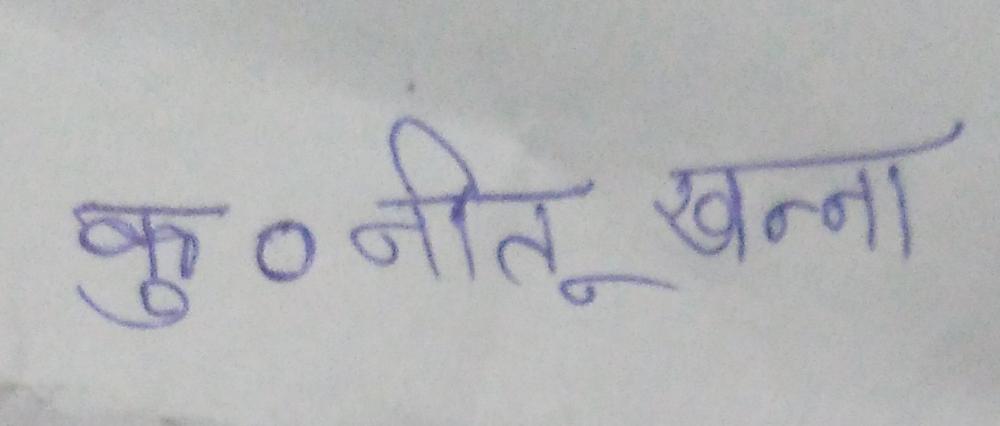 कु० नीतू खन्ना